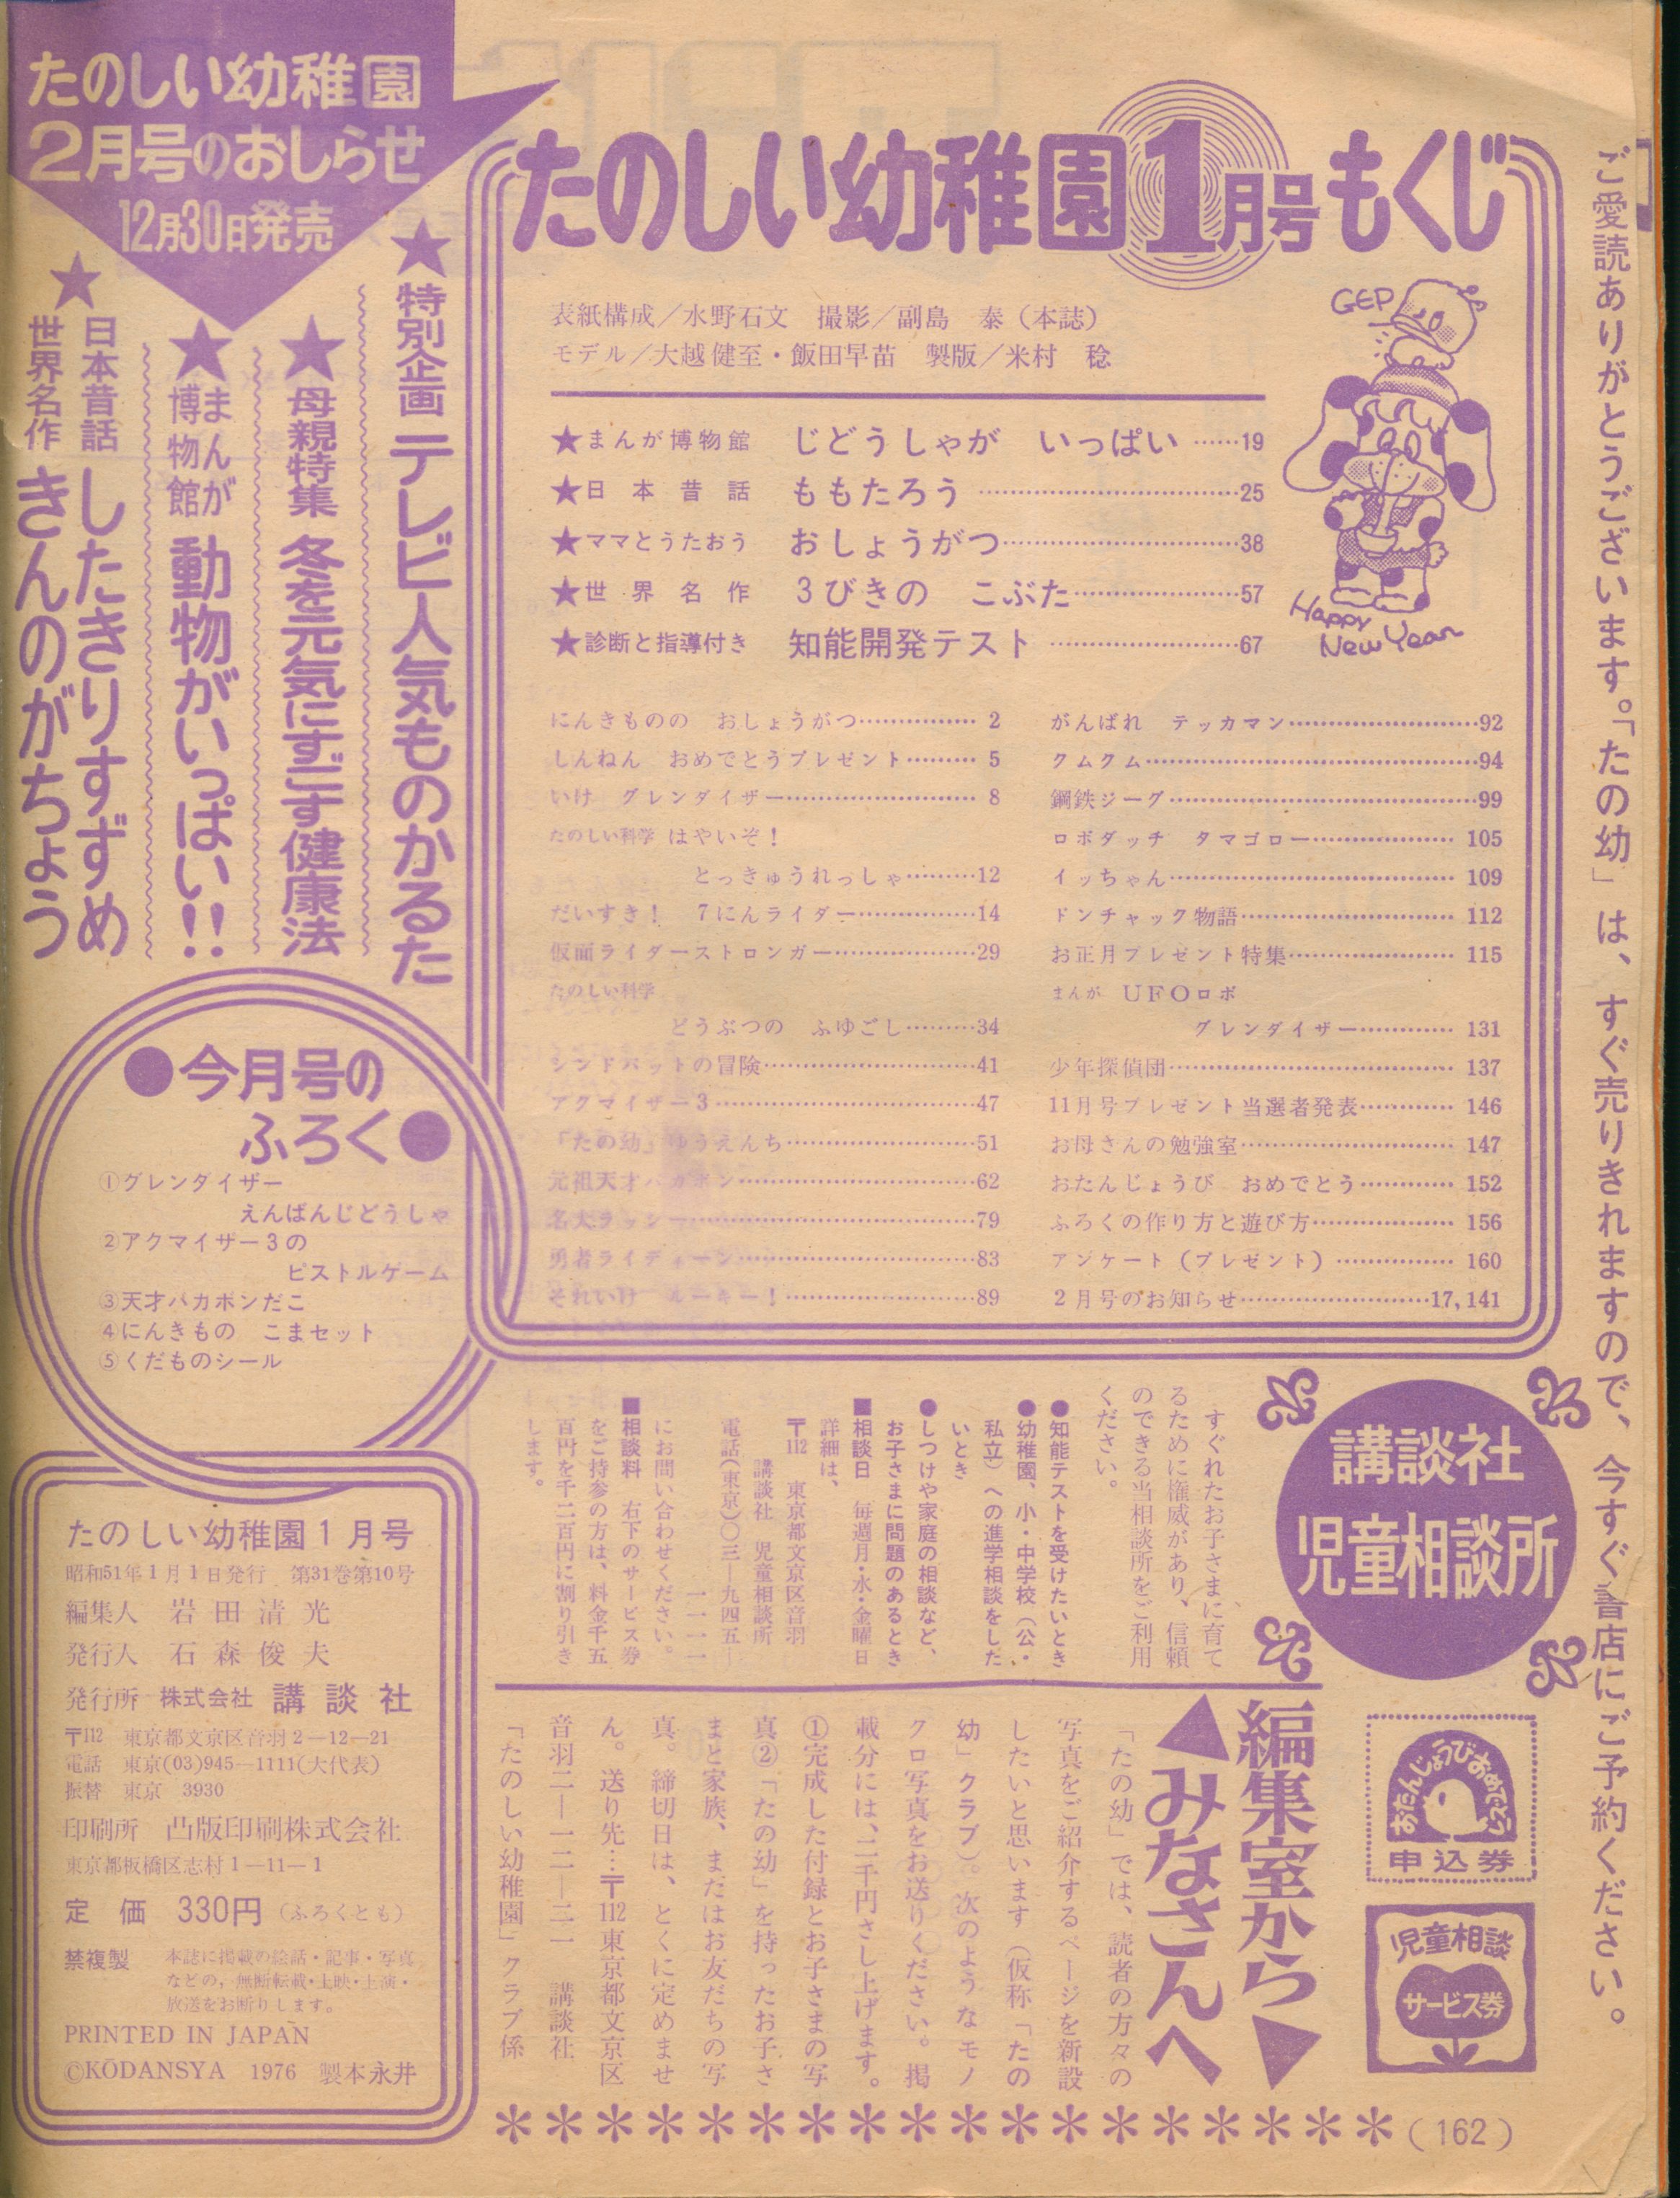 ご愛読ありがとうございます。「たの幼」は、すぐ売りきれますので、今すぐ書店にご予約ください。
たのしい幼稚園1月号もくじ
表紙構成／水野石文　撮影／副島　泰（本誌）
モデル／大越健至・飯田早苗　製版／米村　稔
GEP
Happy
New Year
★まんが博物館　じどうしゃが　いっぱい……19
★日本昔話　ももたろう……25
★ママとうたおう　おしょうがつ……38
★世界名作　3びきの　こぶた……57
★診断と指導付き　知能開発テスト……67
にんきものの　おしょうがつ……2
しんねん　おめでとうプレゼント……5
いけ　グレンダイザー……8
たのしい科学　はやいぞ！
とっきゅうれっしゃ……12
だいすき！　7にんライダー……14
仮面ライダーストロンガー……29
たのしい科学
どうぶつの　ふゆごし……34
シンドバットの冒険……41
アクマイザー3……47
「たの幼」ゆうえんち……51
元祖天才バカボン……62
名犬ラッシー……79
勇者ライディーン……83
それいけ　ルーキー！……89
がんばれ　テッカマン……92
クムクム……94
鋼鉄ジーグ……99
ロボダッチ　タマゴロー……105
イッちゃん……109
ドンチャック物語……112
お正月プレゼント特集……115
まんが　UFOロボ
グレンダイザー……131
少年探偵団……137
11月号プレゼント当選者発表……146
お母さんの勉強室……147
おたんじょうび　おめでとう……152
ふろくの作り方と遊び方……156
アンケート（プレゼント）……160
2月号のお知らせ……17,141
たのしい幼稚園
2月号のおしらせ
12月30日発売
★特別企画　テレビ人気ものかるた
★母親特集　冬を元気にすごす健康法
★まんが博物館　動物がいっぱい!!
★日本昔話　したきりすずめ
世界名作　きんのがちょう
●今月号の
ふろく●
①グレンダイザー
えんばんじどうしゃ
②アクマイザー3の
ピストルゲーム
③天才バカボンだこ
④にんきもの　こまセット
⑤くだものシール
たのしい幼稚園1月号
昭和51年1月1日発行　第31巻第10号
編集人　岩田清光
発行人　石森俊夫
発行所　株式会社　講談社
〒112　東京都文京区音羽2—12—21
電話　東京(03)945—1111(大代表)
振替　東京　3930
印刷所　凸版印刷株式会社
東京都板橋区志村1—11—1
定　価　330円（ふろくとも）
禁複製　本誌に掲載の絵話・記事・写真
などの，無断転載・上映・上演・
放送をお断りします。
PRINTED IN JAPAN
©KŌDANSYA　1976　製本永井
講談社
児童相談所
すぐれたお子さまに育て
るために権威があり、信頼
のできる当相談所をご利用
ください。
●知能テストを受けたいとき
●幼稚園、小・中学校（公・
私立）への進学相談をした
いとき
●しつけや家庭の相談など、
お子さまに問題のあるとき
■相談日　毎週月・水・金曜日
詳細は、
〒112　東京都文京区音羽
講談社　児童相談所
電話（東京）〇三—九四五—
一一一一
にお問い合わせください。
■相談料　右下のサービス券
をご持参の方は、料金千五
百円を千二百円に割り引き
します。
編集室から▼
▲みなさんへ
「たの幼」では、読者の方々の
写真をご紹介するページを新設
したいと思います（仮称「たの
幼」クラブ）。次のようなモノ
クロ写真をお送りください。掲
載分には、二千円さし上げます。
①完成した付録とお子さまの写
真②「たの幼」を持ったお子さ
まと家族、またはお友だちの写
真。締切日は、とくに定めませ
ん。送り先…〒112東京都文京区
音羽二—一二—二一　講談社
「たのしい幼稚園」クラブ係
おたんじょうびおめでとう
申込券
児童相談
サービス券
（162）